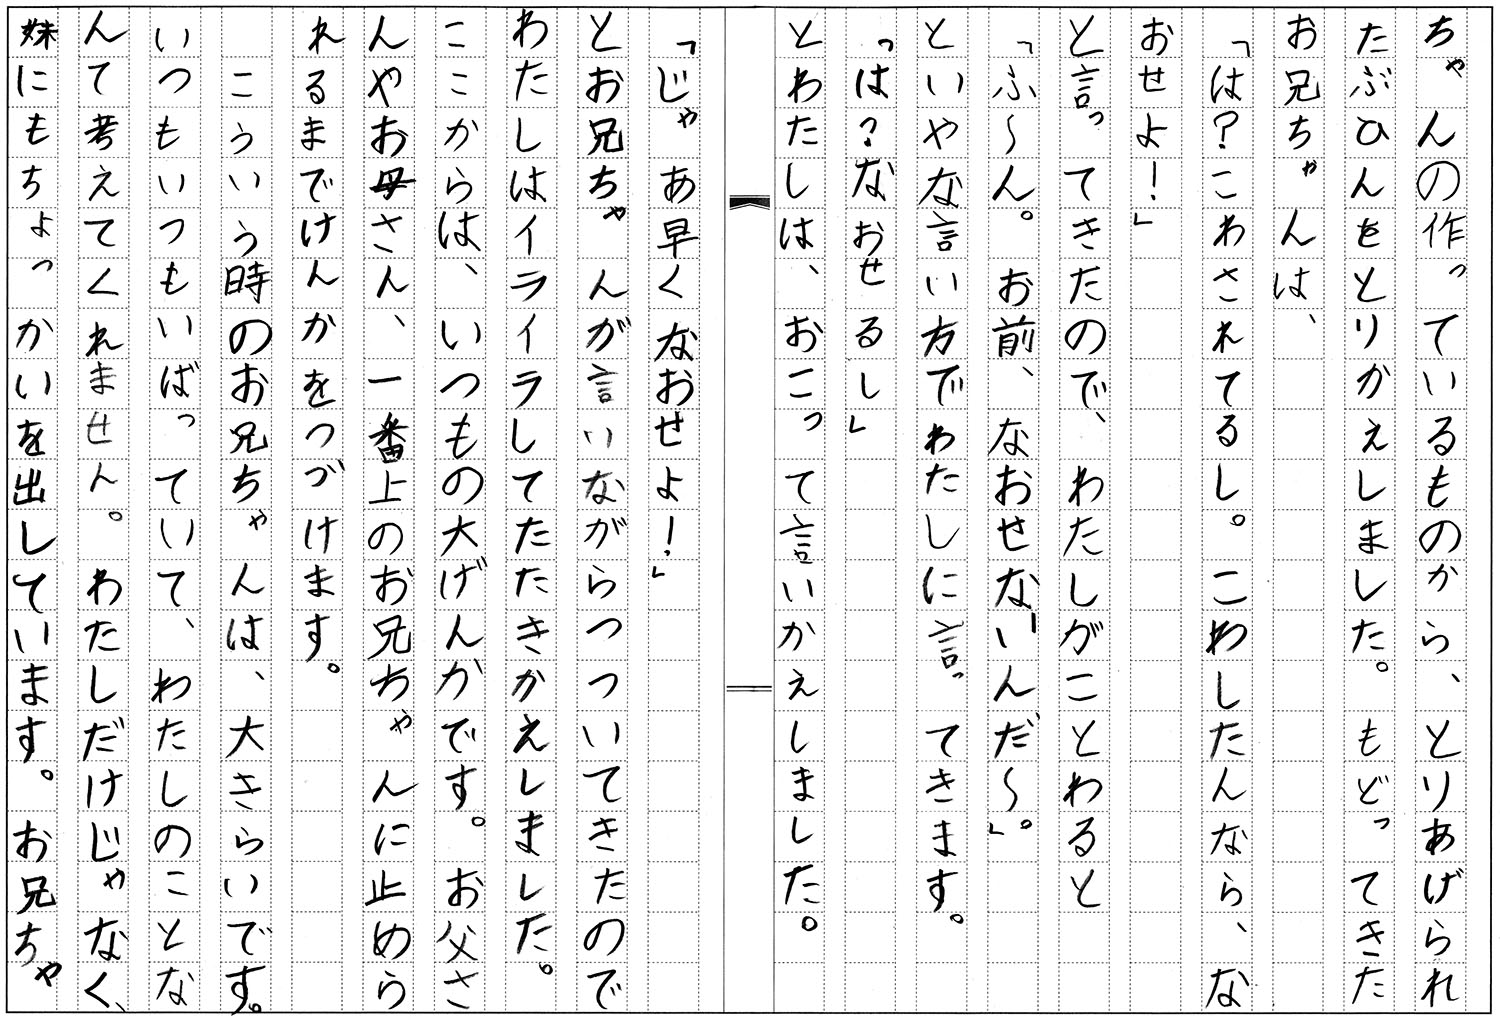 ちゃんの作っているものから、とりあげられ
たぶひんをとりかえしました。もどってきた
お兄ちゃんは、
「は?こわされてるし。こわしたんなら、な
おせよ!」
と言ってきたので、わたしがことわると
「ふ〜ん。お前、なおせないんだ〜。」
といやな言い方でわたしに言ってきます。
「は?なおせるし」
とわたしは、おこって言いかえしました。
「じゃあ早くなおせよ!」
とお兄ちゃんが言いながらつついてきたので
わたしはイライラしてたたきかえしました。
ここからは、いつもの大げんかです。お父さ
んやお母さん、一番上のお兄ちゃんに止めら
れるまでけんかをつづけます。
こういう時のお兄ちゃんは、大きらいです。
いつもいつもいばっていて、わたしのことな
んて考えてくれません。わたしだけじゃなく、
妹にもちょっかいを出しています。お兄ちゃ